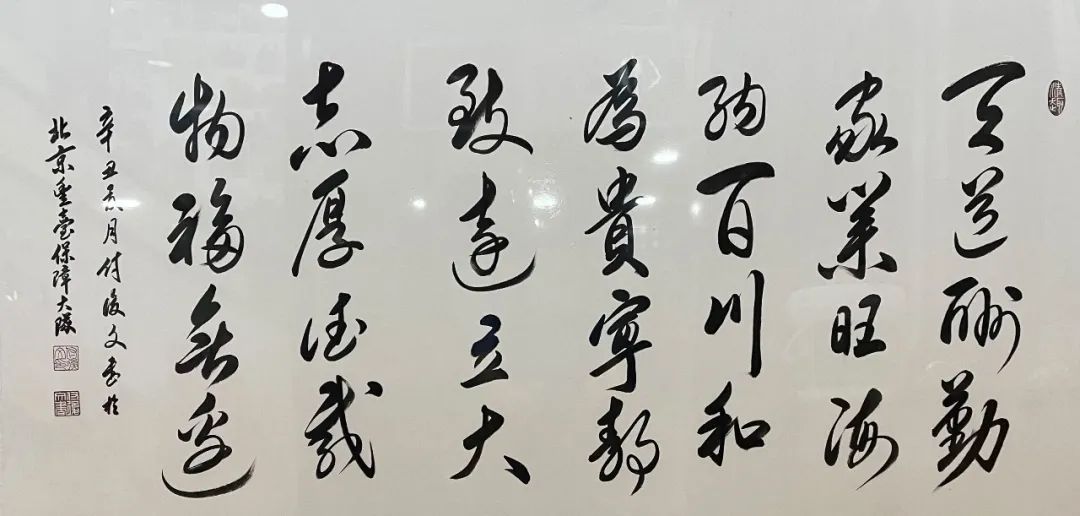 天道酬勤
家業旺海
納百川和
為貴寧靜
致遠立大
志厚德載
物福無邊
辛丑月付文書於
北京豐臺保障大隊